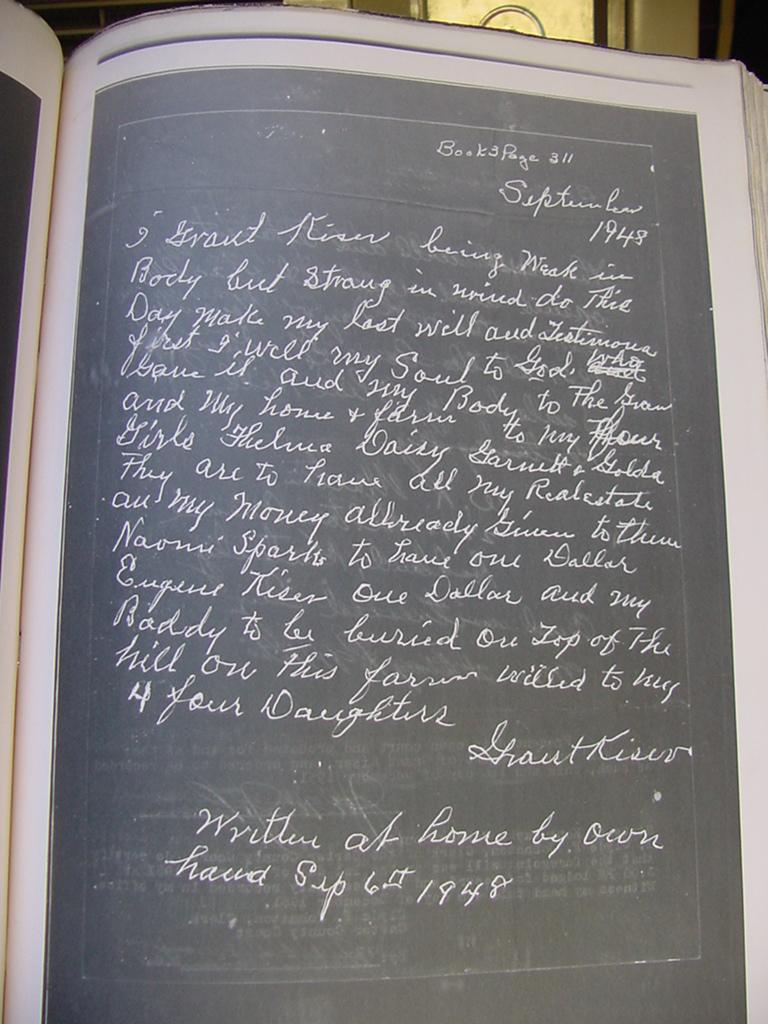 Book 3 Page 311
September
1948
I Grant Kiser being Weak in
Body but Strong in mind do This
Day make my last will and Testimona
first I will my Soul to God. who
Gave it and my Body to The Grave
and my home & farm to my four
Girls Thelma Daisy Garnett & Golda
They are to have all my Realestate
all my Money allready Given to them
Naomi Sparks to have one Dollar
Eugene Kiser one Dollar and my
Boddy to be buried on Top of The
hill on This farm willed to my
4 four Daughters
Grant Kiser
Written at home by own
hand Sep 6th 1948